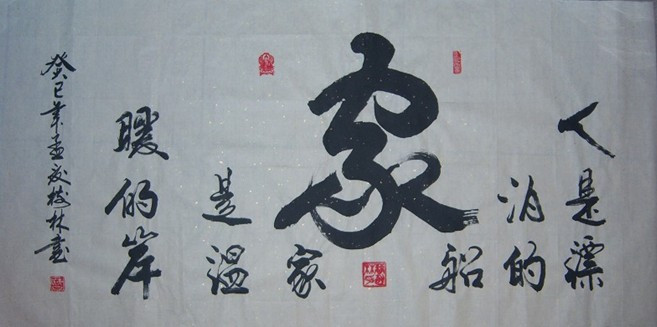 家
人是漂
泊的
船
家
是温
暖的岸
癸巳年孟夏林書